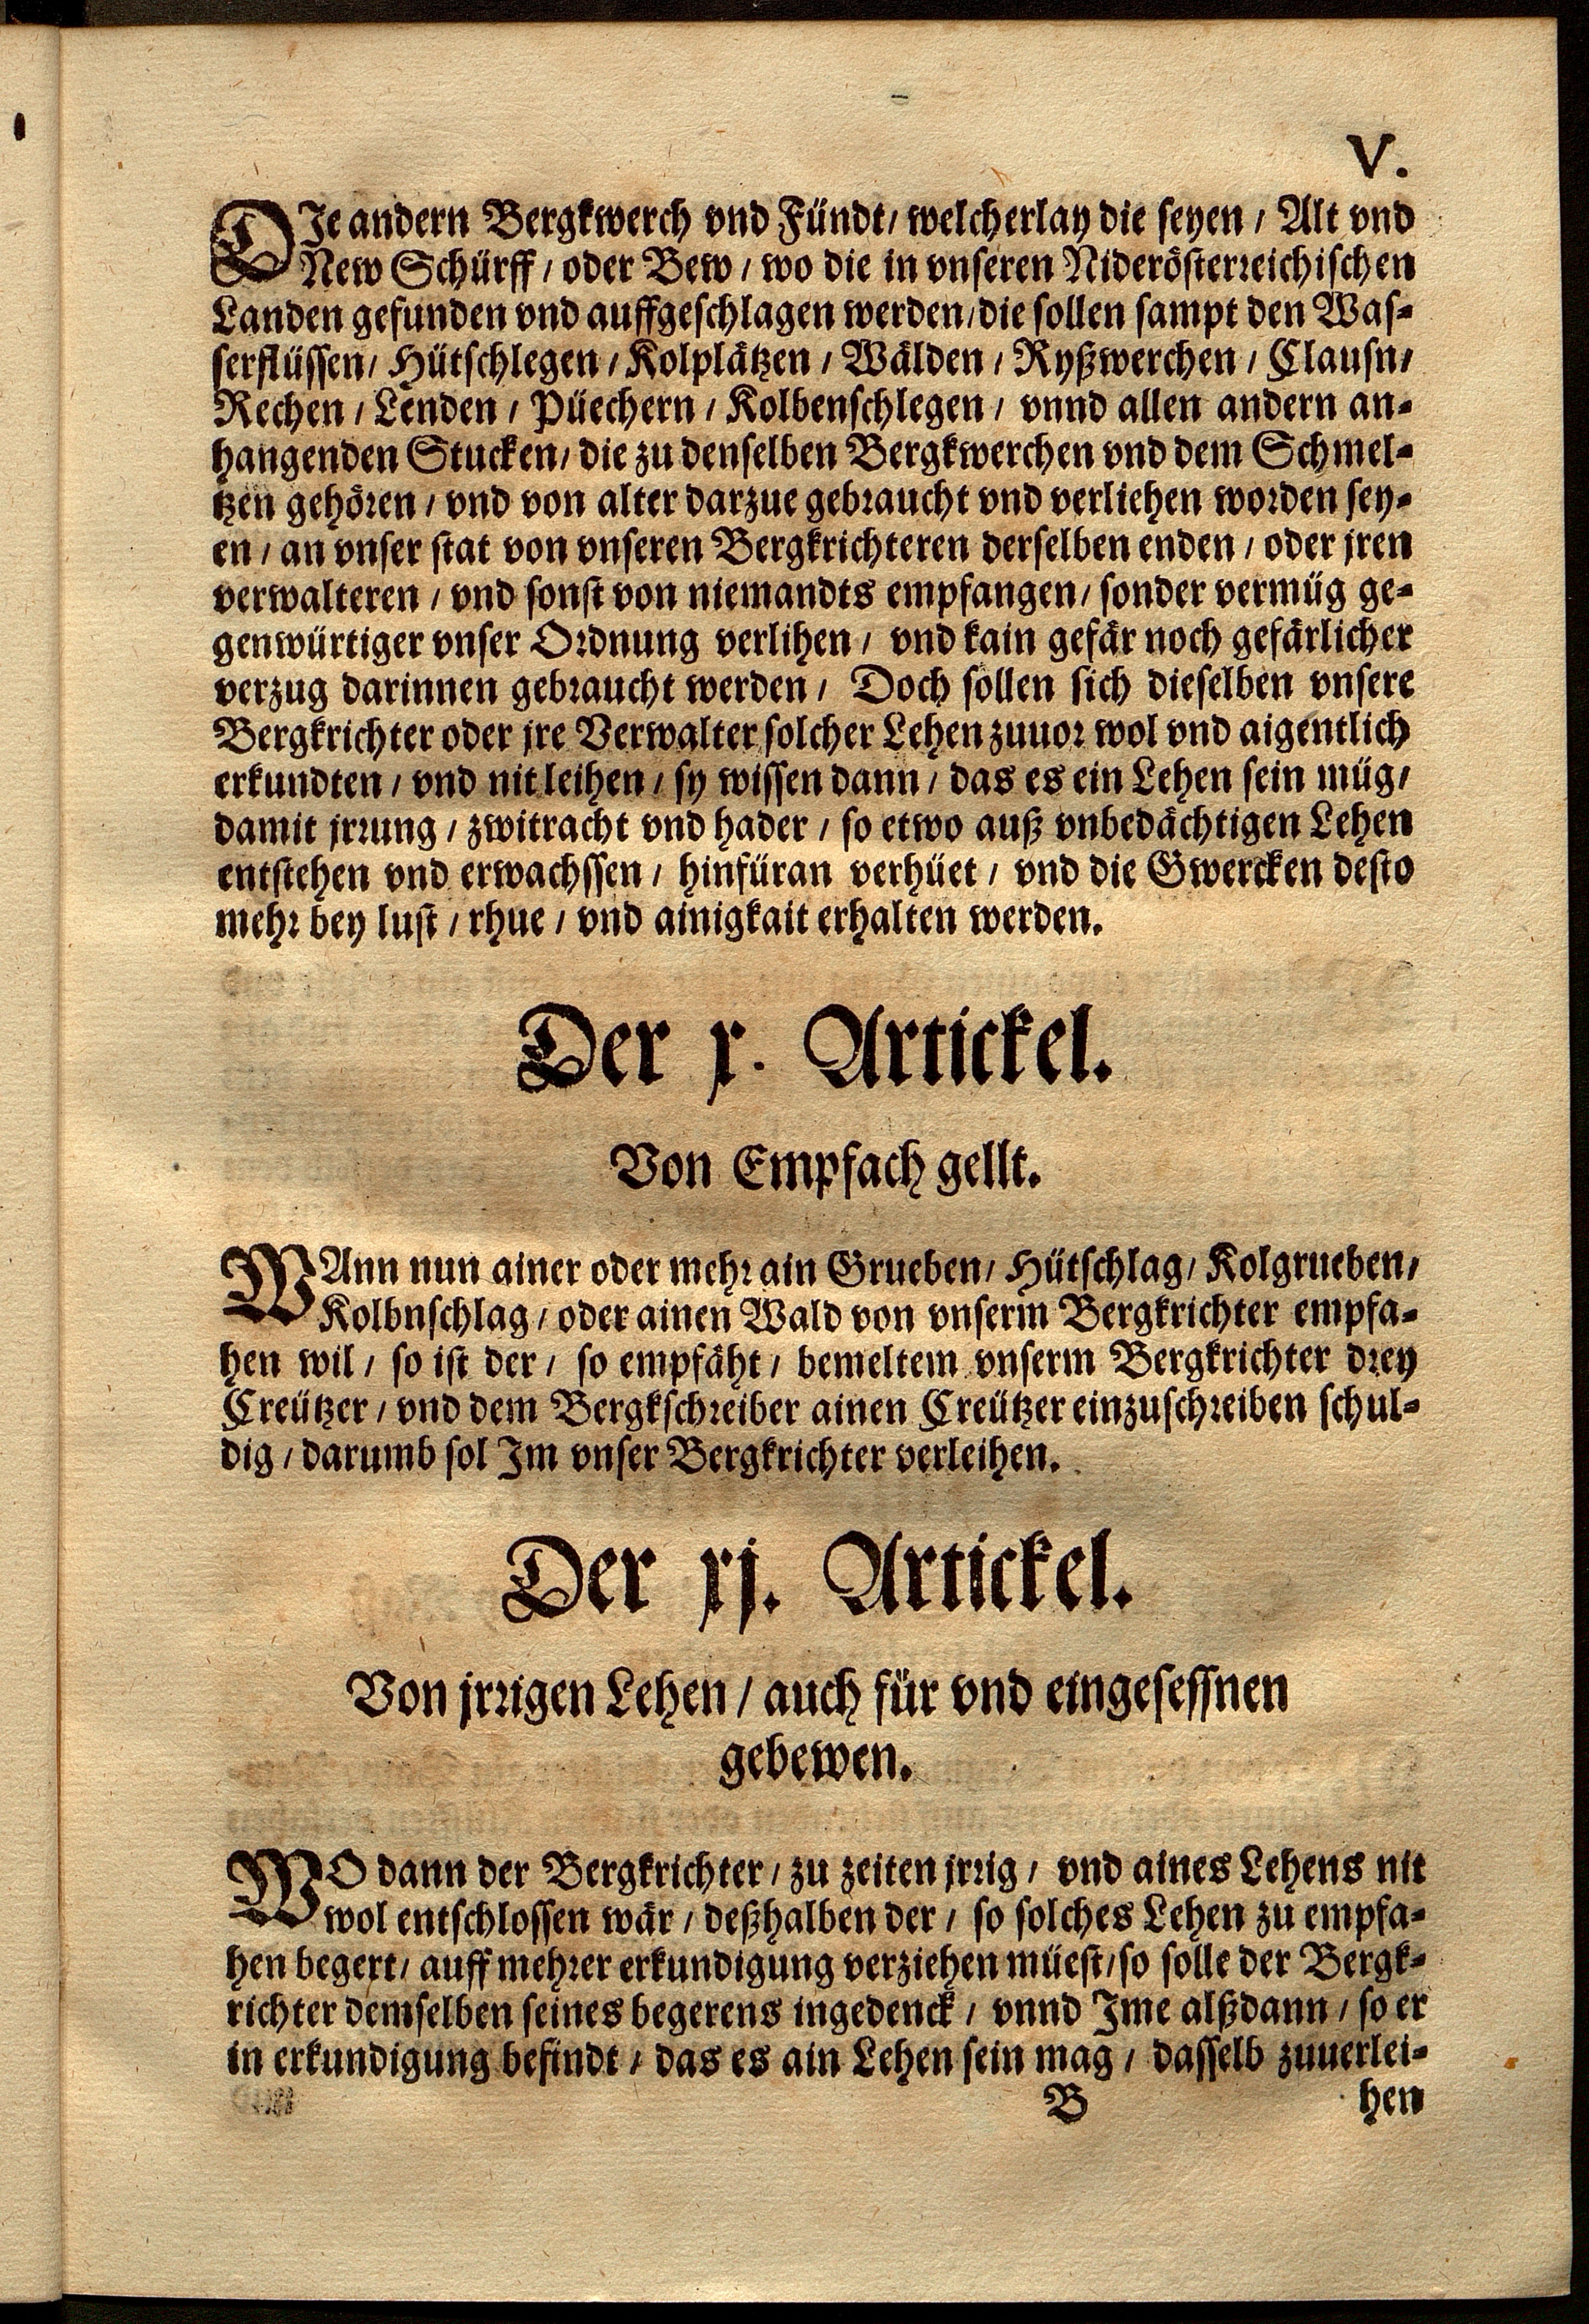 V.
DIe andern Bergkwerch vnd Fündt / welcherlay die seyen / Alt vnd
New Schürff / oder Bew / wo die in vnseren Niderösterreichischen
Landen gefunden vnd auffgeschlagen werden / die sollen sampt den Was-
serflüssen / Hütschlegen / Kolplätzen / Wälden / Ryßwerchen / Clausn /
Rechen / Lenden / Püechern / Kolbenschlegen / vnnd allen andern an-
hangenden Stucken / die zu denselben Bergkwerchen vnd dem Schmel-
tzen gehören / vnd von alter darzue gebraucht vnd verliehen worden sey-
en / an vnser stat von vnseren Bergkrichteren derselben enden / oder jren
verwalteren / vnd sonst von niemandts empfangen / sonder vermüg ge-
genwürtiger vnser Ordnung verlihen / vnd kain gefär noch gefärlicher
verzug darinnen gebraucht werden / Doch sollen sich dieselben vnsere
Bergkrichter oder jre Verwalter solcher Lehen zuuor wol vnd aigentlich
erkundten / vnd nit leihen / sy wissen dann / das es ein Lehen sein müg /
damit jrrung / zwitracht vnd hader / so etwo auß vnbedächtigen Lehen
entstehen vnd erwachssen / hinfüran verhüet / vnd die Gwercken desto
mehr bey lust / rhue / vnd ainigkait erhalten werden.
Der x. Artickel.
Von Empfach gellt.
WAnn nun ainer oder mehr ain Grueben / Hütschlag / Kolgrueben /
Kolbnschlag / oder ainen Wald von vnserm Bergkrichter empfa-
hen wil / so ist der / so empfäht / bemeltem vnserm Bergkrichter drey
Creützer / vnd dem Bergkschreiber ainen Creützer einzuschreiben schul-
dig / darumb sol Im vnser Bergkrichter verleihen.
Der xj. Artickel.
Von jrrigen Lehen / auch für vnd eingesessnen
gebewen.
WO dann der Bergkrichter / zu zeiten jrrig / vnd aines Lehens nit
wol entschlossen wär / deßhalben der / so solches Lehen zu empfa-
hen begert / auff mehrer erkundigung verziehen müest / so solle der Bergk-
richter demselben seines begerens ingedenck / vnnd Ime alßdann / so er
in erkundigung befindt / das es ain Lehen sein mag / dasselb zuuerlei-
B hen